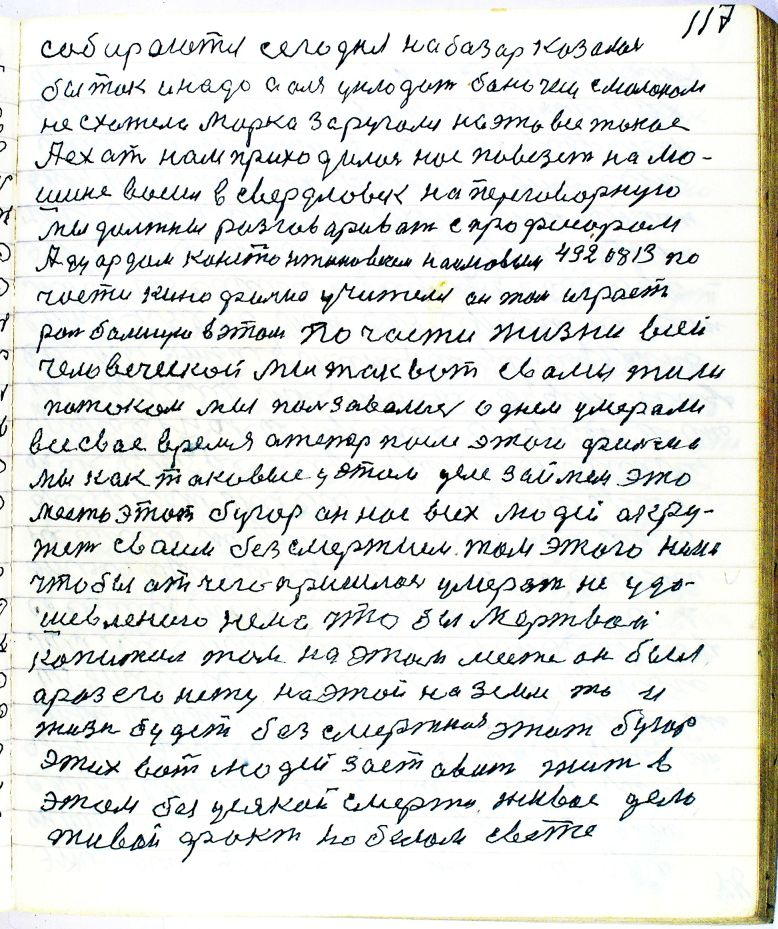 117
собираются сегодня на базар казалоя
бы так и надо а оля укладат баночки смолоком
не схотела Марка заругали на это все такое
Аехат нам приходилоя нас повезет на ма-
шине васия в свердловск на переговорную
мы должны разговариват с професором
Адуардам канстантиновичем наумовым 4920813 по
части кинофилма учителя он там играет
рол балшую в этом по части жизни всей
человеческой мы так вот свами жили
потоком мы ползавалися однем умерали
все свае время атепер после этого
мы как таковые у этом деле займем это
место этот бугор он нас всех людей акру-
жет сваим безсмертием. там этого нема
чтобы ат чего пришлоя умерат не удо-
шевленого нема что бы мертвой
капижал там на этом месте он был
а раз его нету на этой на земли то и
жизн будет без смертная этот бугор
этих вот людей заставит жит в
этом без усякой смерти. живое дело
живой факт на белом свете